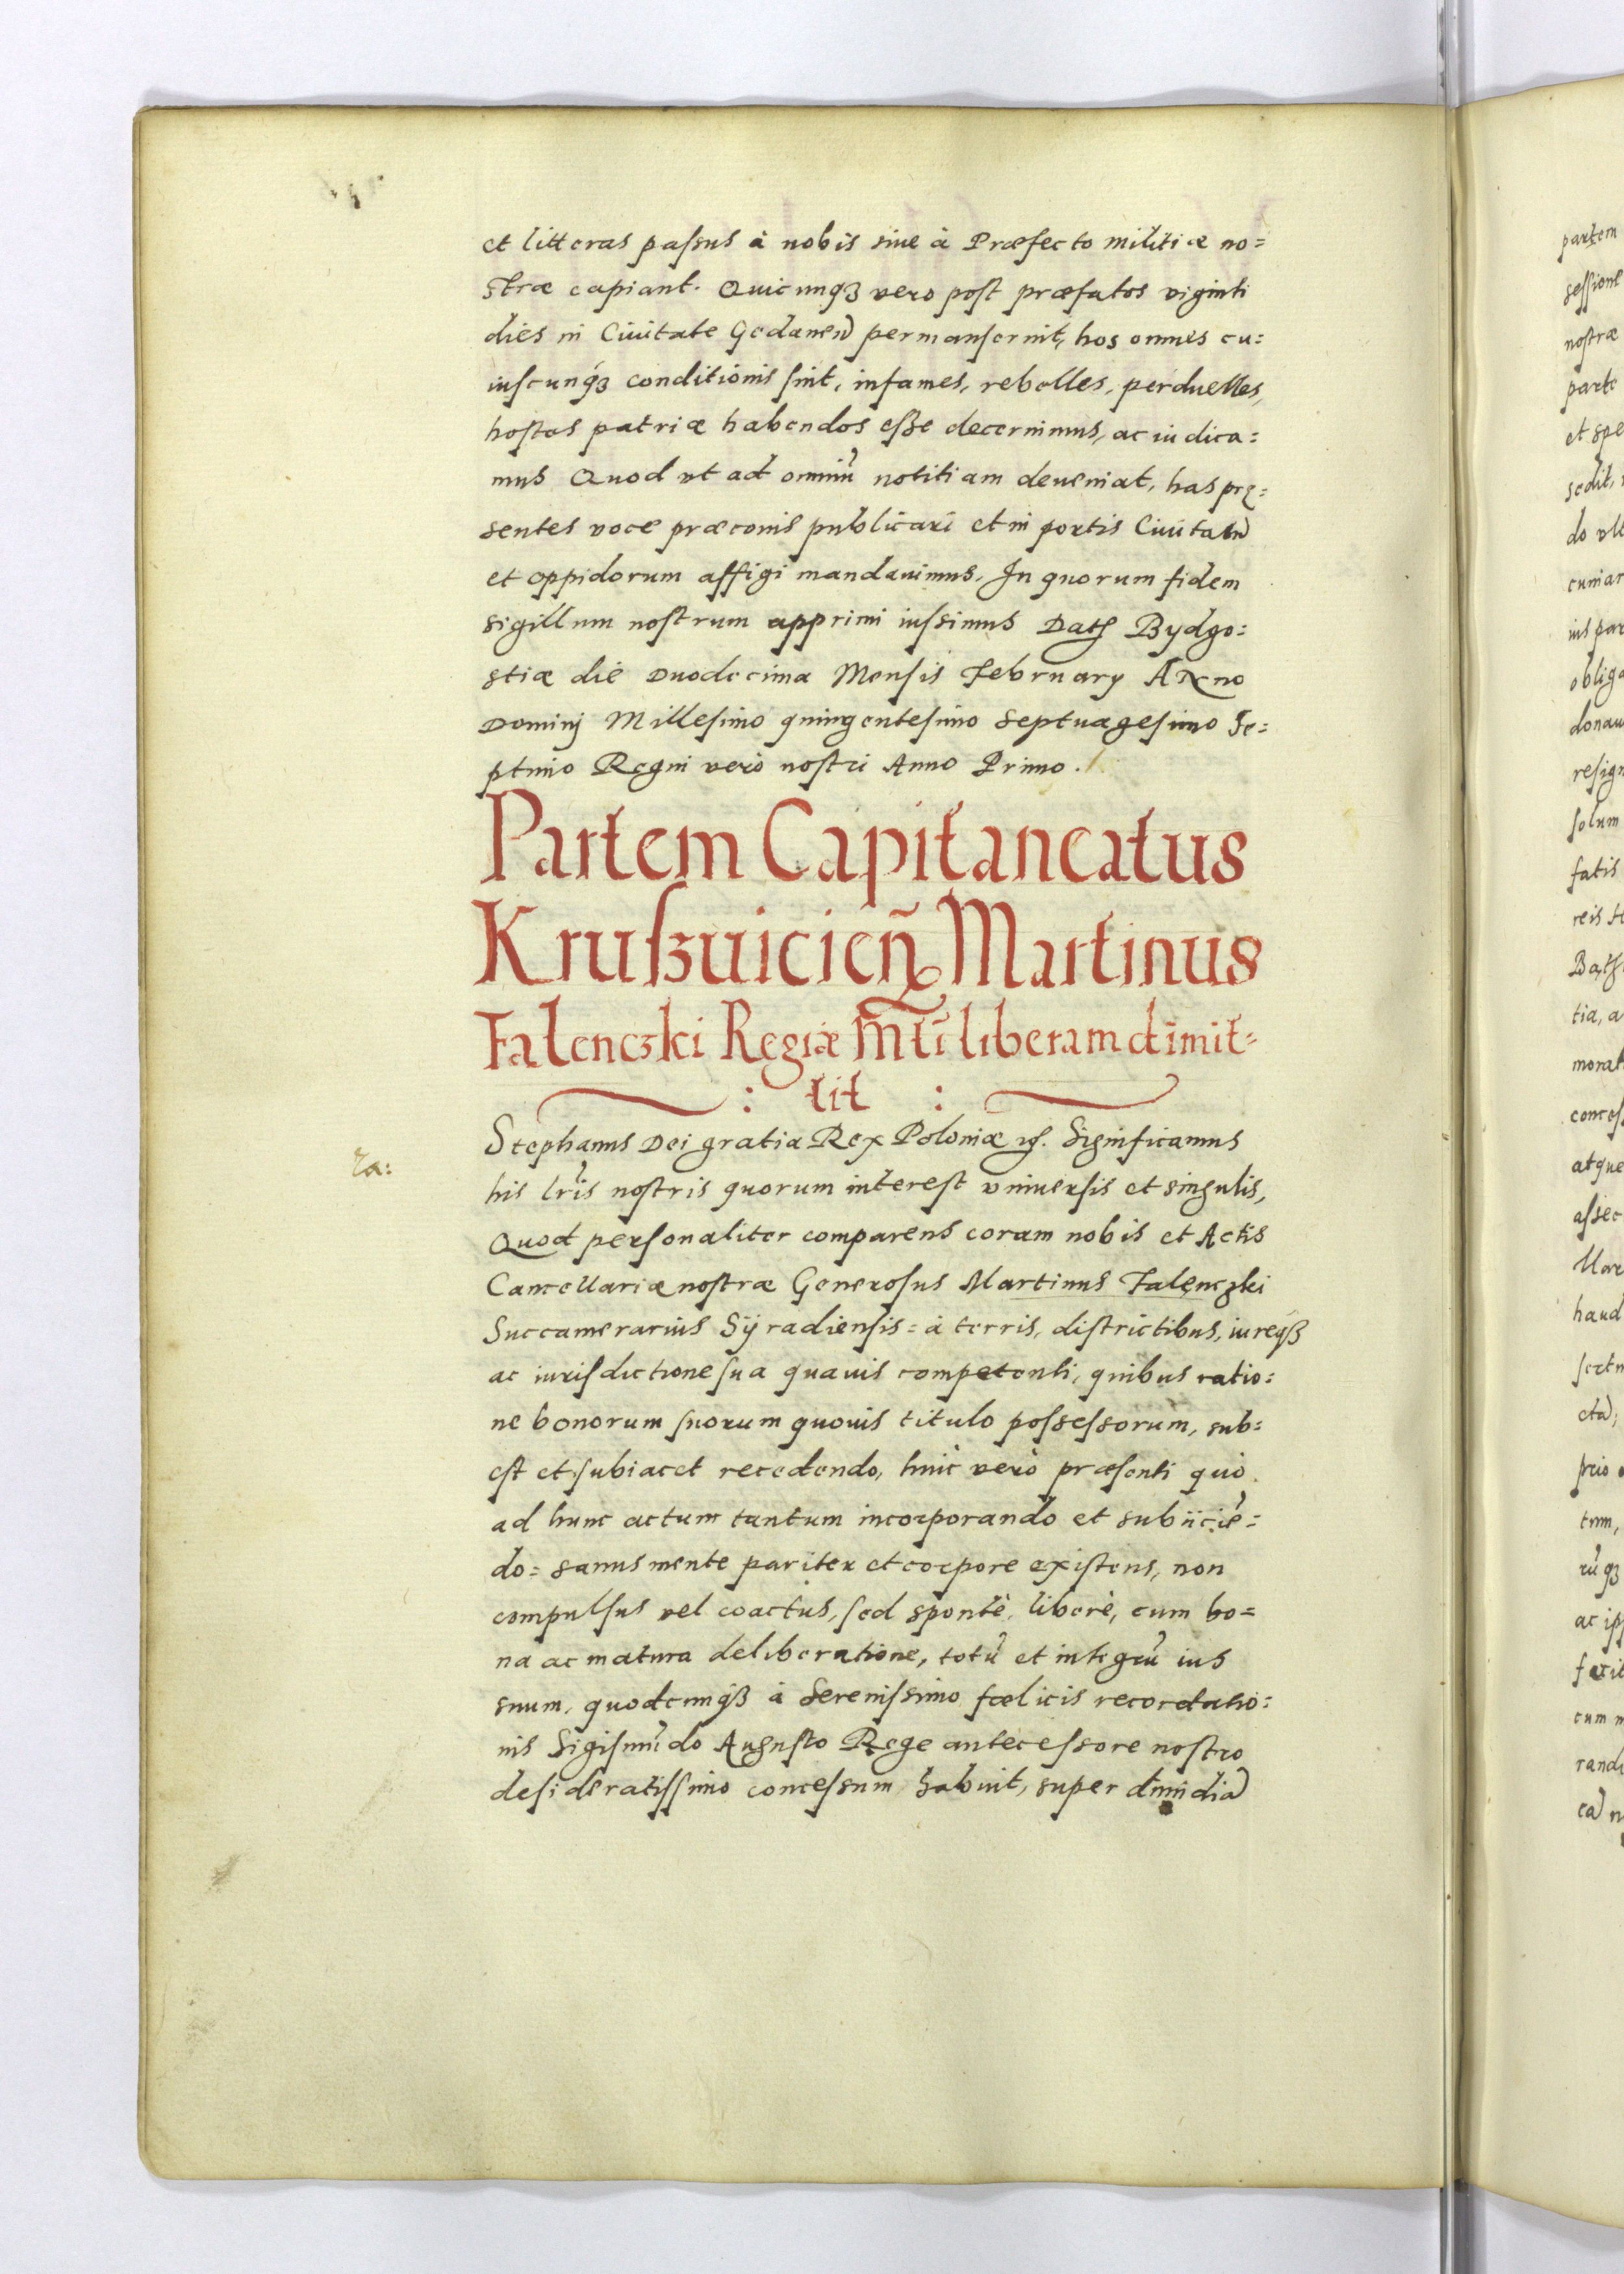 et litteras passus à nobis siue à Præfecto militiæ no=
stræ capiant. Quicunq3 vero post præfatos viginti
dies in Ciuitate Gedanen permanserint, hos omnes cu=
iuscunq3 conditionis sint, infames, rebelles, perduelles,
hostes patriæ habendos esse decernimus, ac iudica=
mus Quod vt ad omniũ notitiam deueniat, has prę=
sentes voce præconis publicari et in portis Ciuitatũ
et oppidorum affigi mandauimus. In quorum fidem
sigillum nostrum apprimi iussimus Dat Bydgo=
stiæ die Duodecima Mensis February Anno
Dominj Millesimo quingentesimo Septuagesimo Se=
ptimo Regni verò nostri Anno Primo.
Partem Capitaneatus
Krußuicień Martinus
Falenczki Regiæ Mti liberam dimit=
: tit :
Stephanus Dei gratia Rex Poloniæ Significamus
his lris nostris quorum interest vniuersis et singulis,
Quod personaliter comparens coram nobis et Actis
Cancellariæ nostræ Generosus Martinus Falęnczki
Succamerarius Syradiensis = à terris, districtibus, iureq3
ac iurisdictione sua quauis competenti, quibus ratio=
ne bonorum suorum quouis titulo possessorum, sub=
est et subiacet recedendo, huic verò præsenti quò
ad hunc actum tantum incorporando et subiiciẽ=
do = sanus mente pariter et corpore existens, non
compulsus vel coactus, sed spontè, liberè, cum bo=
na ac matura deliberatione, totũ et integrũ ius
suum, quodcunq3 à Serenissimo fœlicis recordatio=
nis Sigismũdo Augusto Rege antecessore nostro
desideratissimo concessum habuit, super dimidiã